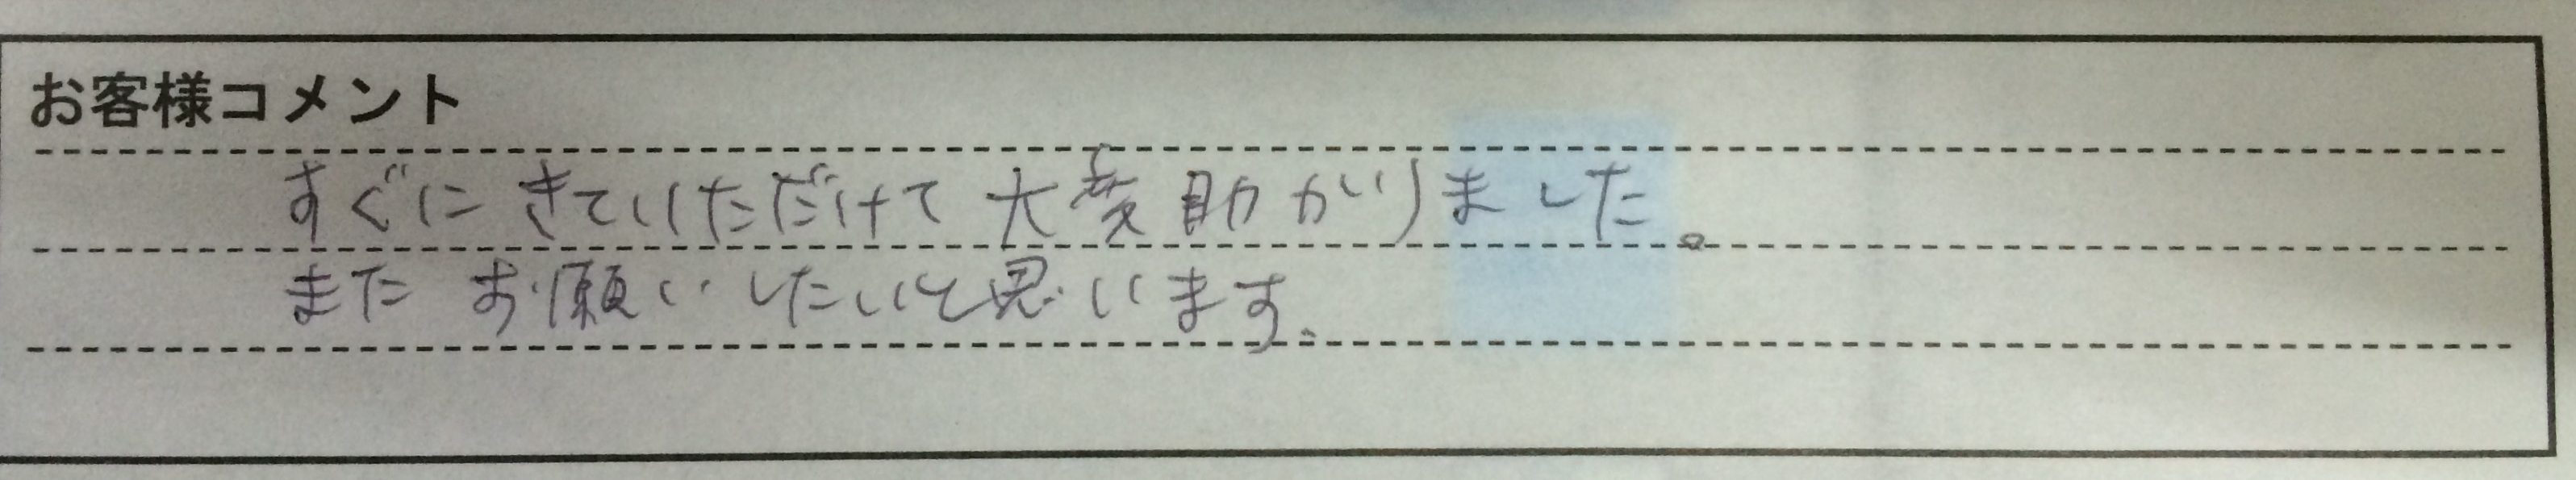 お客様コメント
すぐにきていただけて大変助かりました。
またお願いしたいと思います。